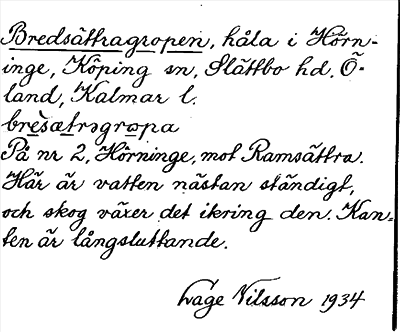 Bredsättragropen, håla i Hörn-
inge, Köping sn, Slättbo hd. Ö-
land, Kalmar l.
bresætrəgropa
På nr 2, Hörninge, mot Ramsättra.
Här är vatten nästan ständigt,
och skog växer det ikring den. Kan-
ten är långsluttande.
Åage Nilsson 1934